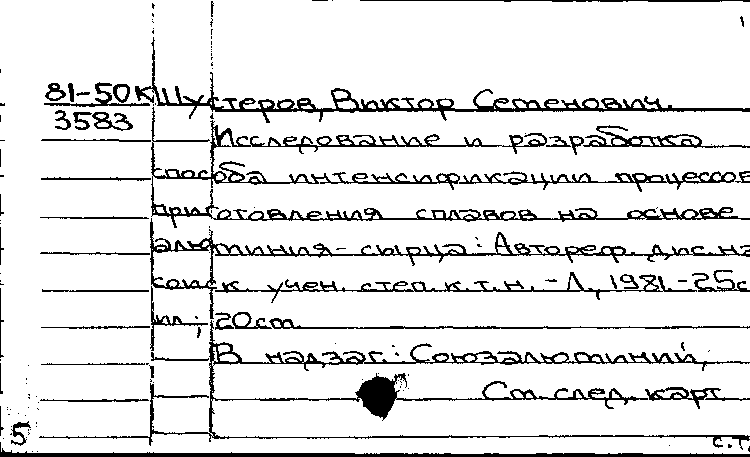 81-50к Шустеров, Виктор Семенович.
3583
Исследование и разработка
способа интенсификации процессов
приготовления сплавов на основе
алюминия-сырца: Автореф. дис. на
соиск. учен. степ. к.т.н. - Л., 1981. - 25с
ил.; 20см.
В надзаг.: Союзалюминий,
См. след. карт
5
с.т.